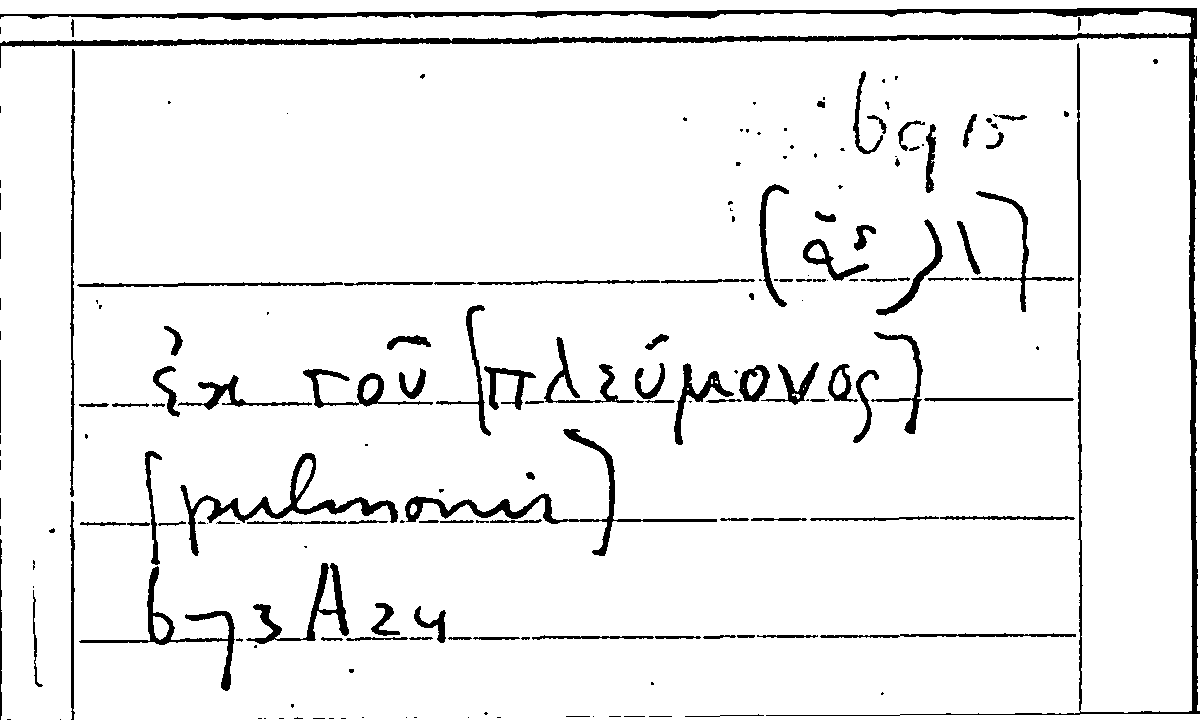 6915
ἐκ τοῦ [πλεύμονος]
[pulmonis]
673A24